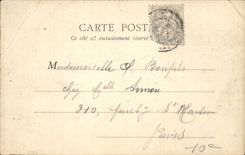 CARTE POST
Ce côté est exclusivement réservé
Mademoiselle
chez Melle Simon
210, faubg St Martin
Paris
10e